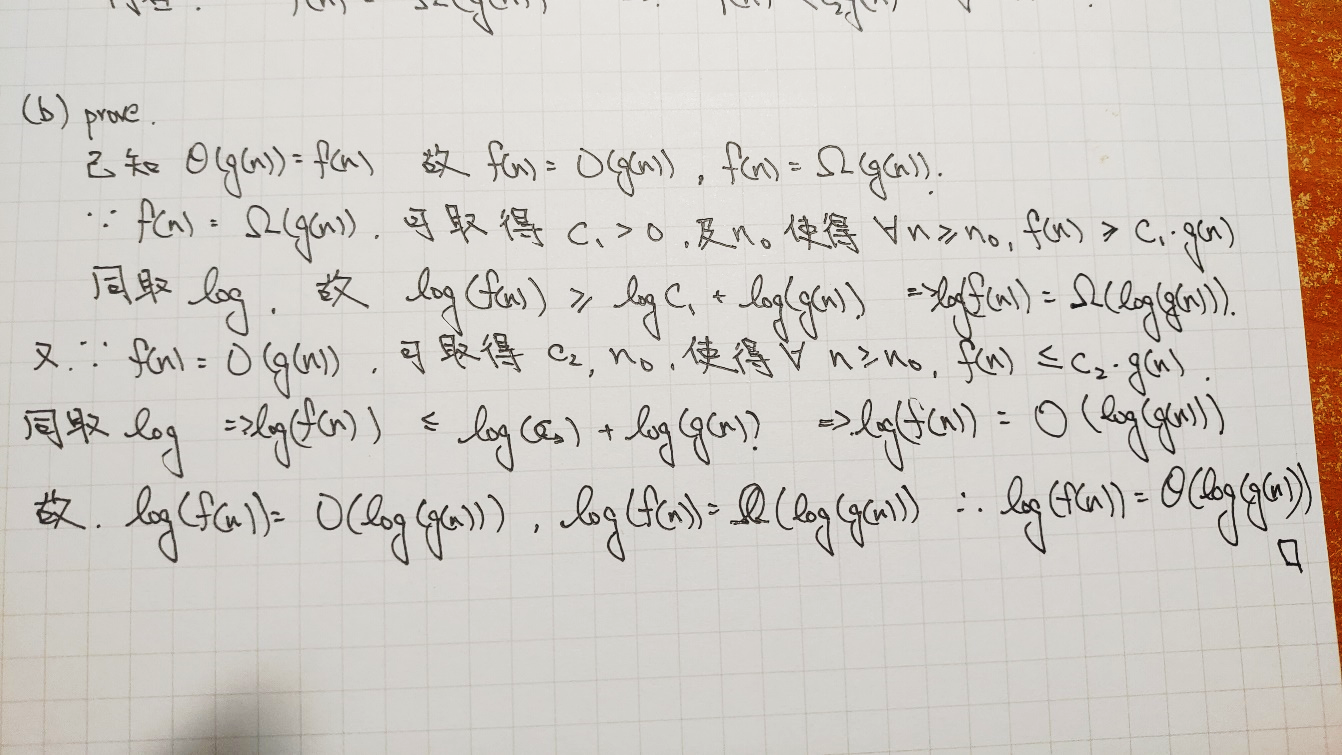 f(n) = Ω(g(n))
(b) prove.
已知 Θ(g(n)) = f(n) 故 f(n) = O(g(n)), f(n) = Ω(g(n)).
∵ f(n) = Ω(g(n)). 可取得 c₁ > 0, 及 n₀ 使得 ∀n ≥ n₀, f(n) ≥ c₁·g(n)
同取 log, 故 log(f(n)) ≥ log c₁ + log(g(n)) ⇒ log(f(n)) = Ω(log(g(n))).
又∵ f(n) = O(g(n)), 可取得 c₂, n₀, 使得 ∀ n ≥ n₀, f(n) ≤ c₂·g(n).
同取 log ⇒ log(f(n)) ≤ log(c₂) + log(g(n)) ⇒ log(f(n)) = O(log(g(n)))
故. log(f(n)) = O(log(g(n))), log(f(n)) = Ω(log(g(n))) ∴ log(f(n)) = Θ(log(g(n)))
□